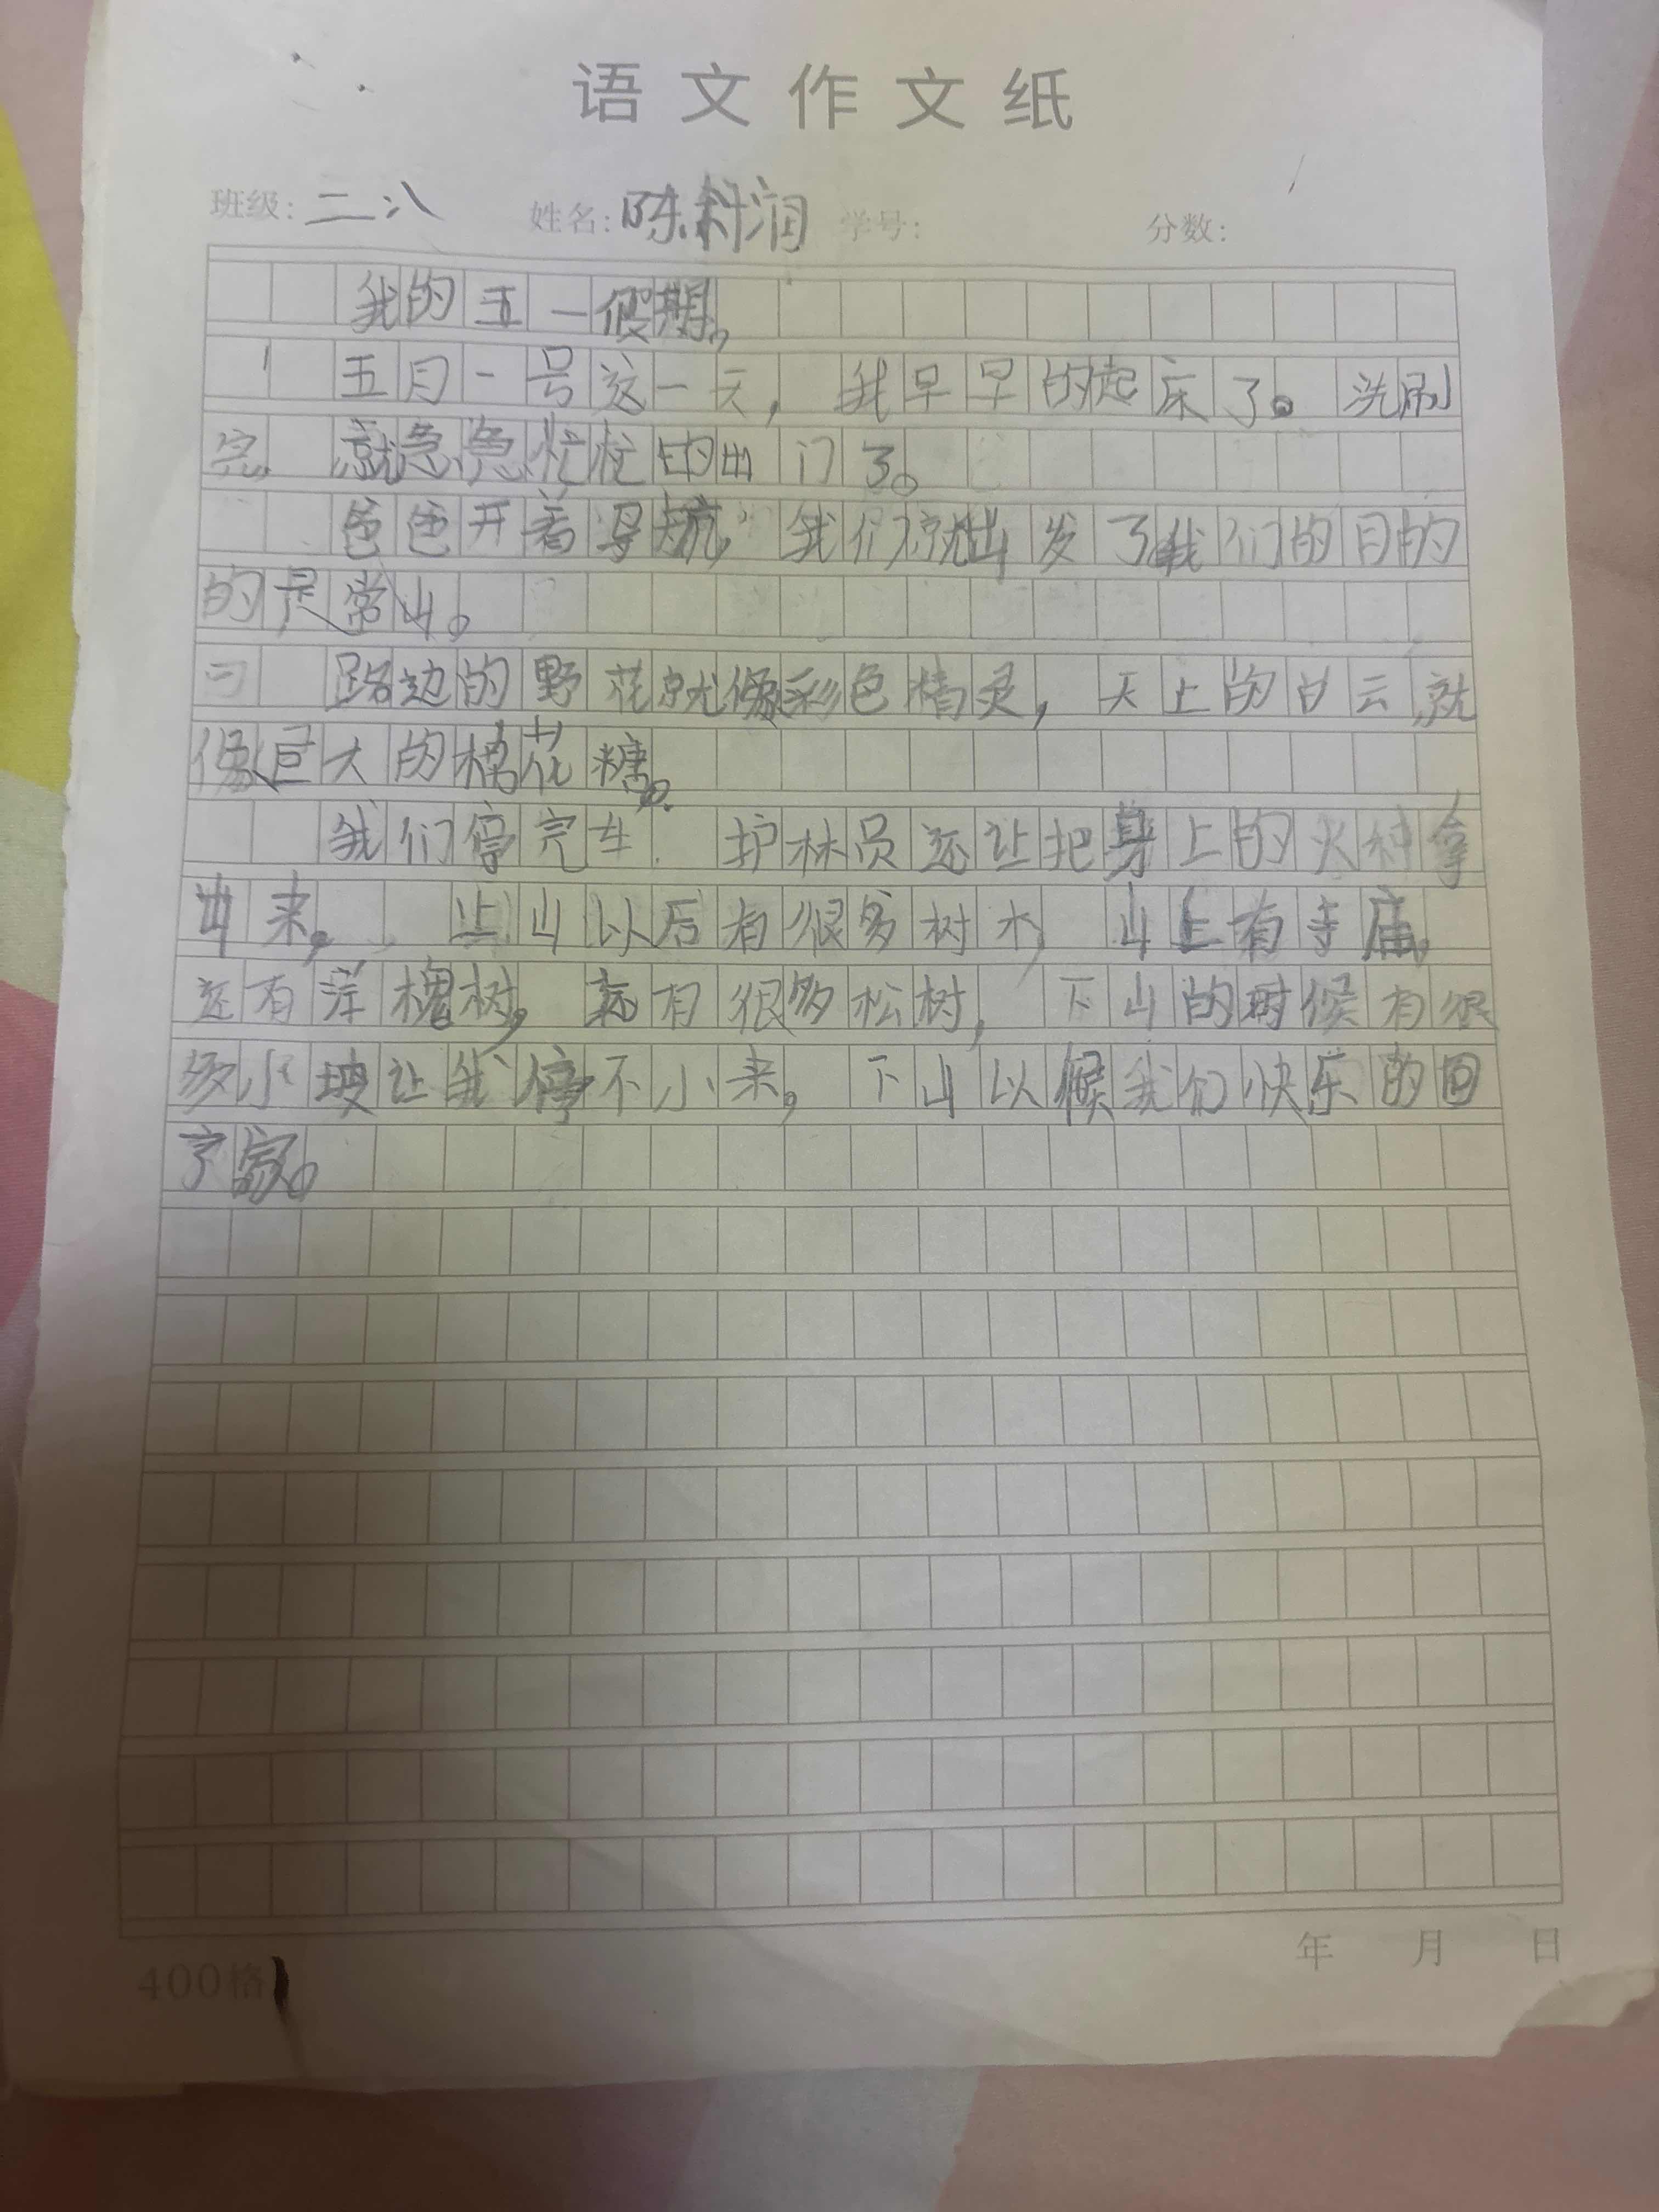 语文作文纸
班级: 二.八 姓名: 陈 润 学号: 分数:
我的五一假期。
五月一号这一天，我早早的起床了。洗刷
完，就急急忙忙的出门了。
爸爸开着导航，我们就出发了我们的目的
的是常山。
路边的野花就像彩色精灵，天上的白云就
像巨大的棉花糖。
我们停完车，护林员还让把身上的火种拿
出来，让山以后有很多树木，山上有寺庙，
还有洋槐树，还有很多松树，下山的时候有很
多小坡让我停不小来，下山以候我们快乐的回
了家。
400格
年 月 日